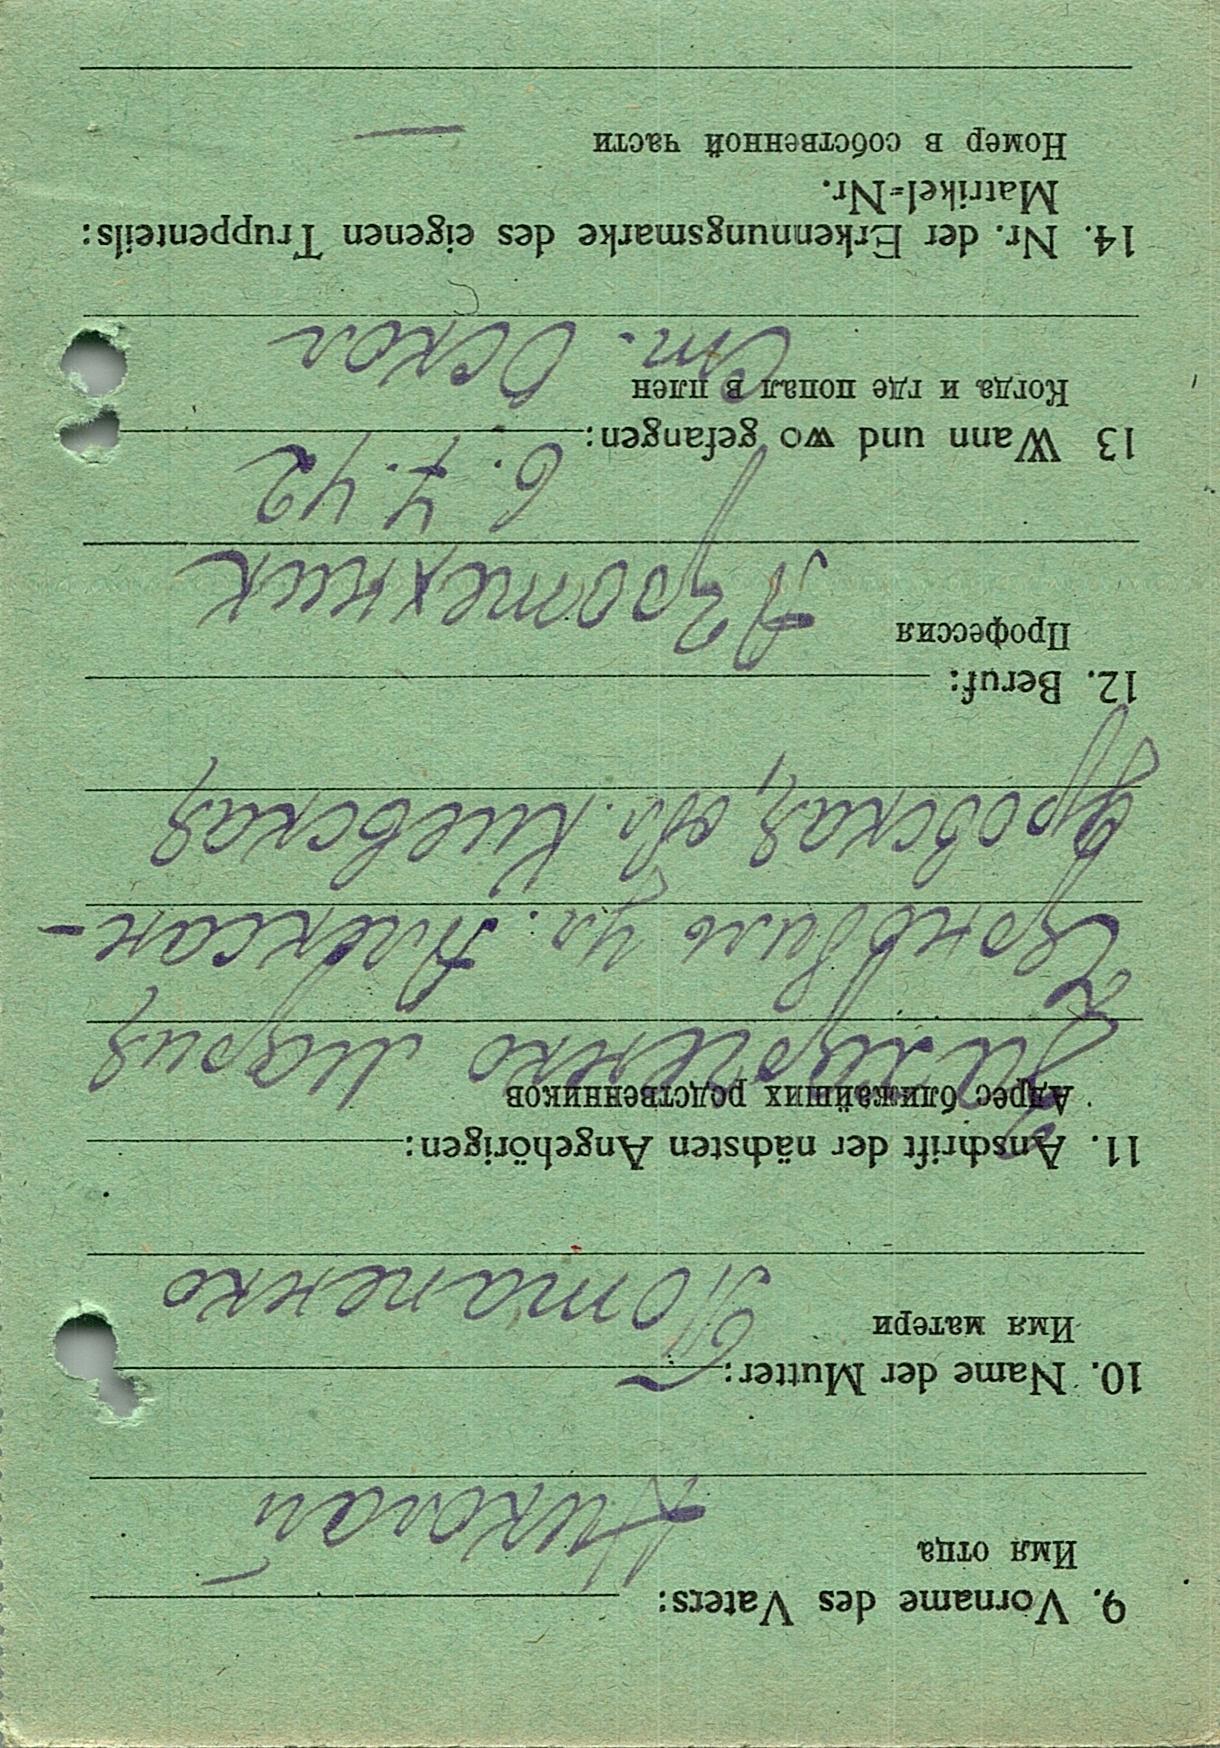 9. Vorname des Vaters:
Имя отца
Николай
10. Name der Mutter:
Имя матери
Потапенко
11. Anschrift der nächsten Angehörigen:
Адрес ближайших родственников
Захарченко Мария,
ул. Алексан-
дровская, обл. Киевская,
12. Beruf:
Профессия
Агротехник
13 Wann und wo gefangen:
6.7.42
Когда и где попал в плен
Ст. Оскол
14. Nr. der Erkennungsmarke des eigenen Truppenteils:
Matrikel=Nr.
Номер в собственной части
—